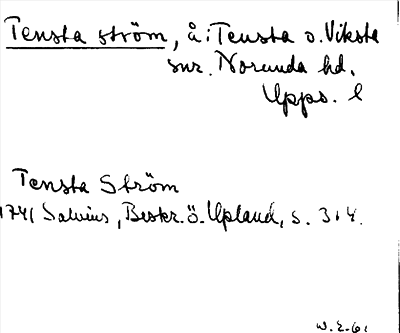 Tensta ström, å i Tensta o. Viksta
snr. Norunda hd.
Upps. l
Tensta Ström
1741 Salvius, Beskr. ö. Upland, s. 314.
W.E-61